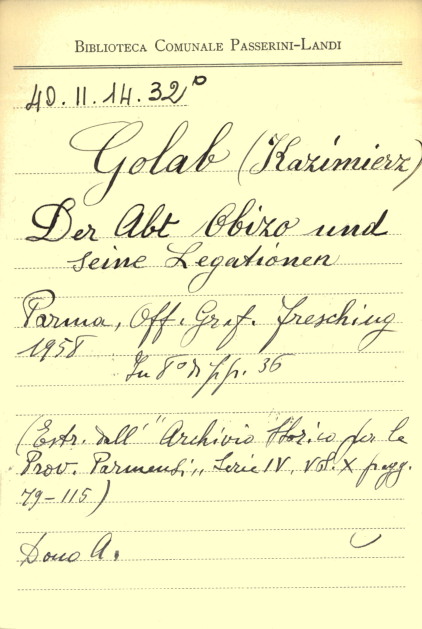 BIBLIOTECA COMUNALE PASSERINI-LANDI
40.II.14.32º
Golab (Kazimierz)
Der Abt Obizo und
seine Legationen
Parma, Off. Graf. Fresching
1958
In 8º di pp. 36
(Estr. dall' "Archivio Storico per le
Prov. Parmensi„ Serie IV, vol. X pagg.
79-115)
Dono A.